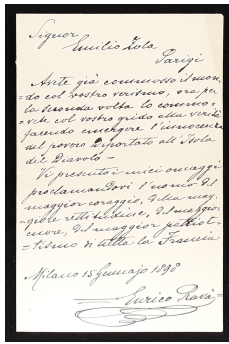 Signor
Emilio Zola
Parigi
Avete già commosso il mon-
=do col vostro verismo, ora per
la seconda volta lo commo-
=vete col vostro grido alla verità
facendo emergere l'innocenza
del povero Deportato all'Isola
del Diavolo—
Vi presento i miei omaggi
proclamandovi l'uomo del
maggior coraggio, della mag-
giore rettitudine, del maggior
cuore, del maggior patriot-
=tismo di tutta la Francia
Milano 15 Gennajo 1898
Enrico